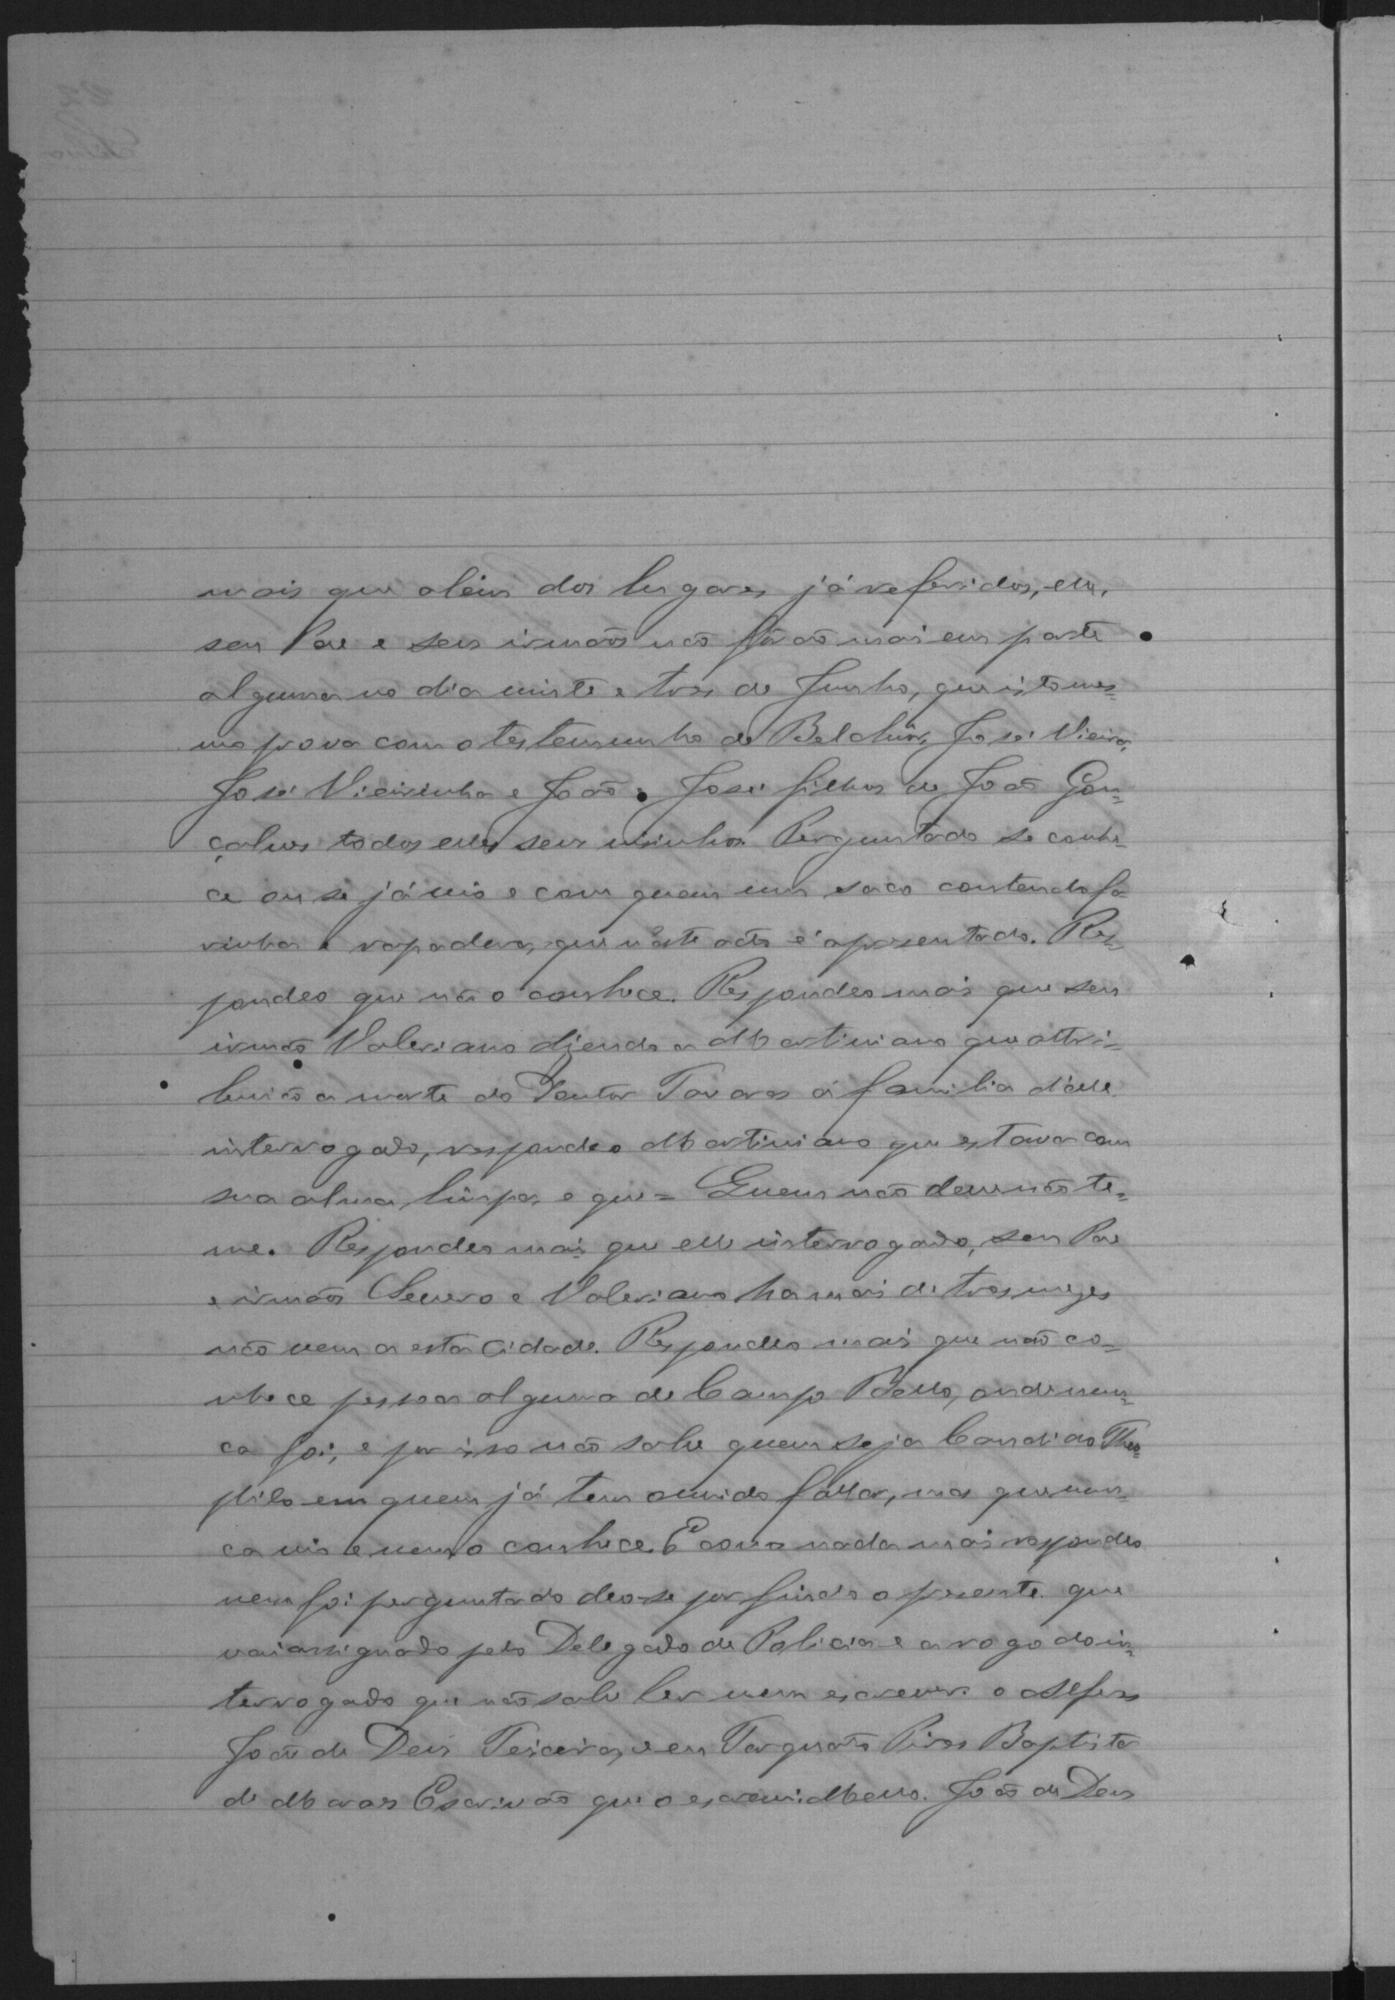 mais que alêm dos lugares já referidos, elle,
seu Pae e seus irmãos não fôrão mais em parte
alguma no dia vinte e tres de Junho, que isto mes=
mo prova com o testemunho de Belchiôr, José Vieira,
José Vieirinha e João e José filhos de João Gon=
çalves todos elles seus visinhos. Perguntado se conhe=
ce ou se já vio e com quem um saco contendo fa
rinha e rapadura, que nêste acto é apresentado. Res=
pondeo que não o conhece. Respondeo mais que seu
irmão Valeriano dizendo a Martiniano que attri=
buião a morte do Doutor Tavares á familia d'elle
interrogado, respondeo Martiniano que estava com
sua alma limpa, e que = Quem não deve não te=
me. Respondeo mais que elle interrogado, seu Pae
e irmãos Severo e Valeriano ha mais de tres mezes
não vem a esta Cidade. Respondeo mais que não co=
nhece pessoa alguma de Campo Bello, onde nun=
ca foi, e por isso não sabe quem seja Candido Theo=
philo em quem já tem ouvido fallar, mas que nun=
ca vio e nem o conhece. E como nada mais respondeo
nem foi perguntado deo-se por findo o presente que
vai assignado pelo Delegado de Policia e a rogo do in=
terrogado que não sabe ler nem escrever o Alferes
João de Deus Teixeira, e eu Torquato Pires Baptista
de Moraes Escrivão que o escrevi. Mello. João de Deus